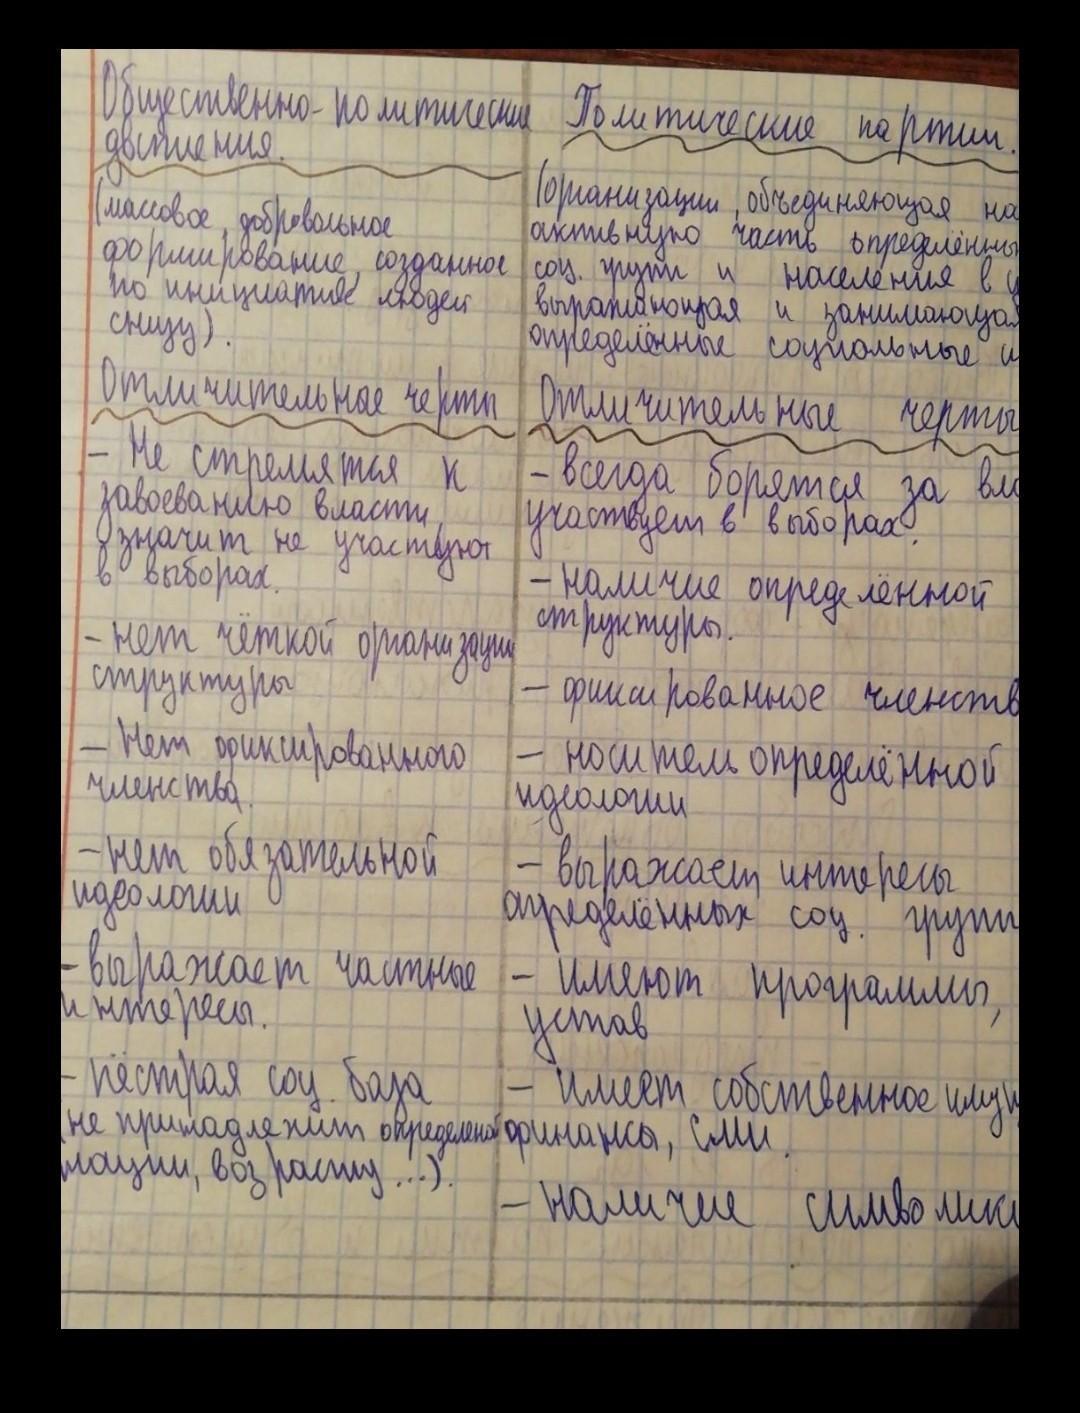 Общественно-политические
движения.
(массовое, добровольное
формирование, созданное
по инициативе людей
снизу).
Отличительные черты
- Не стремятся к
завоеванию власти,
значит не участвуют
в выборах.
- нет чёткой организации
структуры
- Нет фиксированного
членства.
- нет обязательной
идеологии
- выражает частные
интересы.
- пёстрая соц. база
(не принадлежит определеной
нации, возрасту...).
Политические партии.
(организации, объединяющая на
активную часть определённы
соц. групп и населения в ц
выражающая и занимающая
определённые социальные и
Отличительные черты
- всегда борятся за вла
участвует в выборах.
- наличие определённой
структуры.
- фиксированное членств
- носитель определённой
идеологии
- выражает интересы
определённых соц. групп
- имеют программы,
устав
- имеет собственное имущ
финансы, СМИ.
- наличие символики